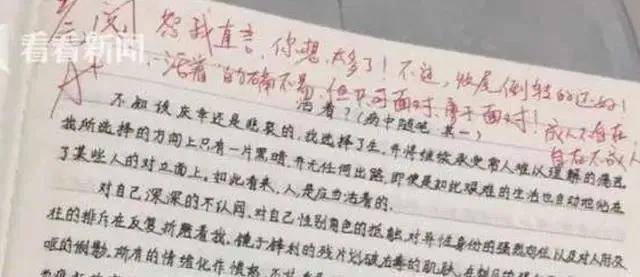 看看新闻
已阅
恕我直言,你想太多了!不过,收尾倒转的还好!
A+
活着的确不易,但只可面对,勇于面对!成人不自在
自在不成人!
活着?(病中随笔 其一)
不知该庆幸还是悲哀的,我选择了生,并将继续承受常人难以理解的痛苦
我所选择的方向上只有一片黑暗,并无任何出路,即使是如此艰难的生活也自动把站在
了某些人的对立面上。如此看来,人是应当活着的。
对自己深深的不认同,对自己性别角色的抵触,对异性身份的强烈向往以及对人际交
往的排斥在反复折磨着我,镜子锋利的残片划破左臂的肌肤
呕的恻隐,所有的情绪化作愤怒